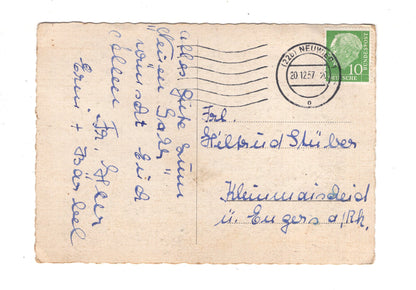 Alles Gute zum
"Neuen Jahr"
wünscht Euch
Allen Fr.
Erni + Bärbel
(22b) NEUWIED 1
20.12.57
DEUTSCHE
BUNDESPOST
10
Frl.
Hiltrud Stüber
Kleinmaischeid
ü. Engers a/Rh.